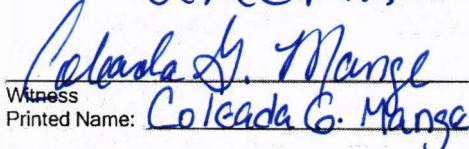 Coleada G. Mange
Witness
Printed Name: Coleada G. Mange